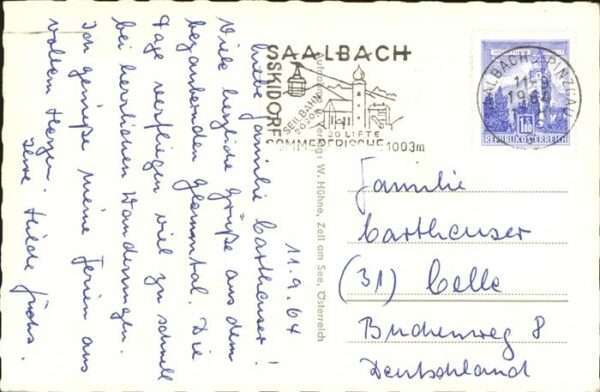 SAALBACH
SKIDORF
SEILBAHN
2020m
20 LIFTE
SOMMERFRISCHE 1003m
SAALBACH, PINZGAU
11
REPUBLIK ÖSTERREICH
W. Hühne, Zell am See, Österreich
11.9.64
Liebe Familie Cartheuser!
Viele herzliche Grüße aus dem
bezaubernden Glemmtal. Die
Tage verfliegen viel zu schnell
bei herrlichen Wanderungen.
Ich genieße meine Ferien aus
vollem Herzen.
Ihre Hilde
Familie
Cartheuser
(31) Celle
Buchenweg 8
Deutschland